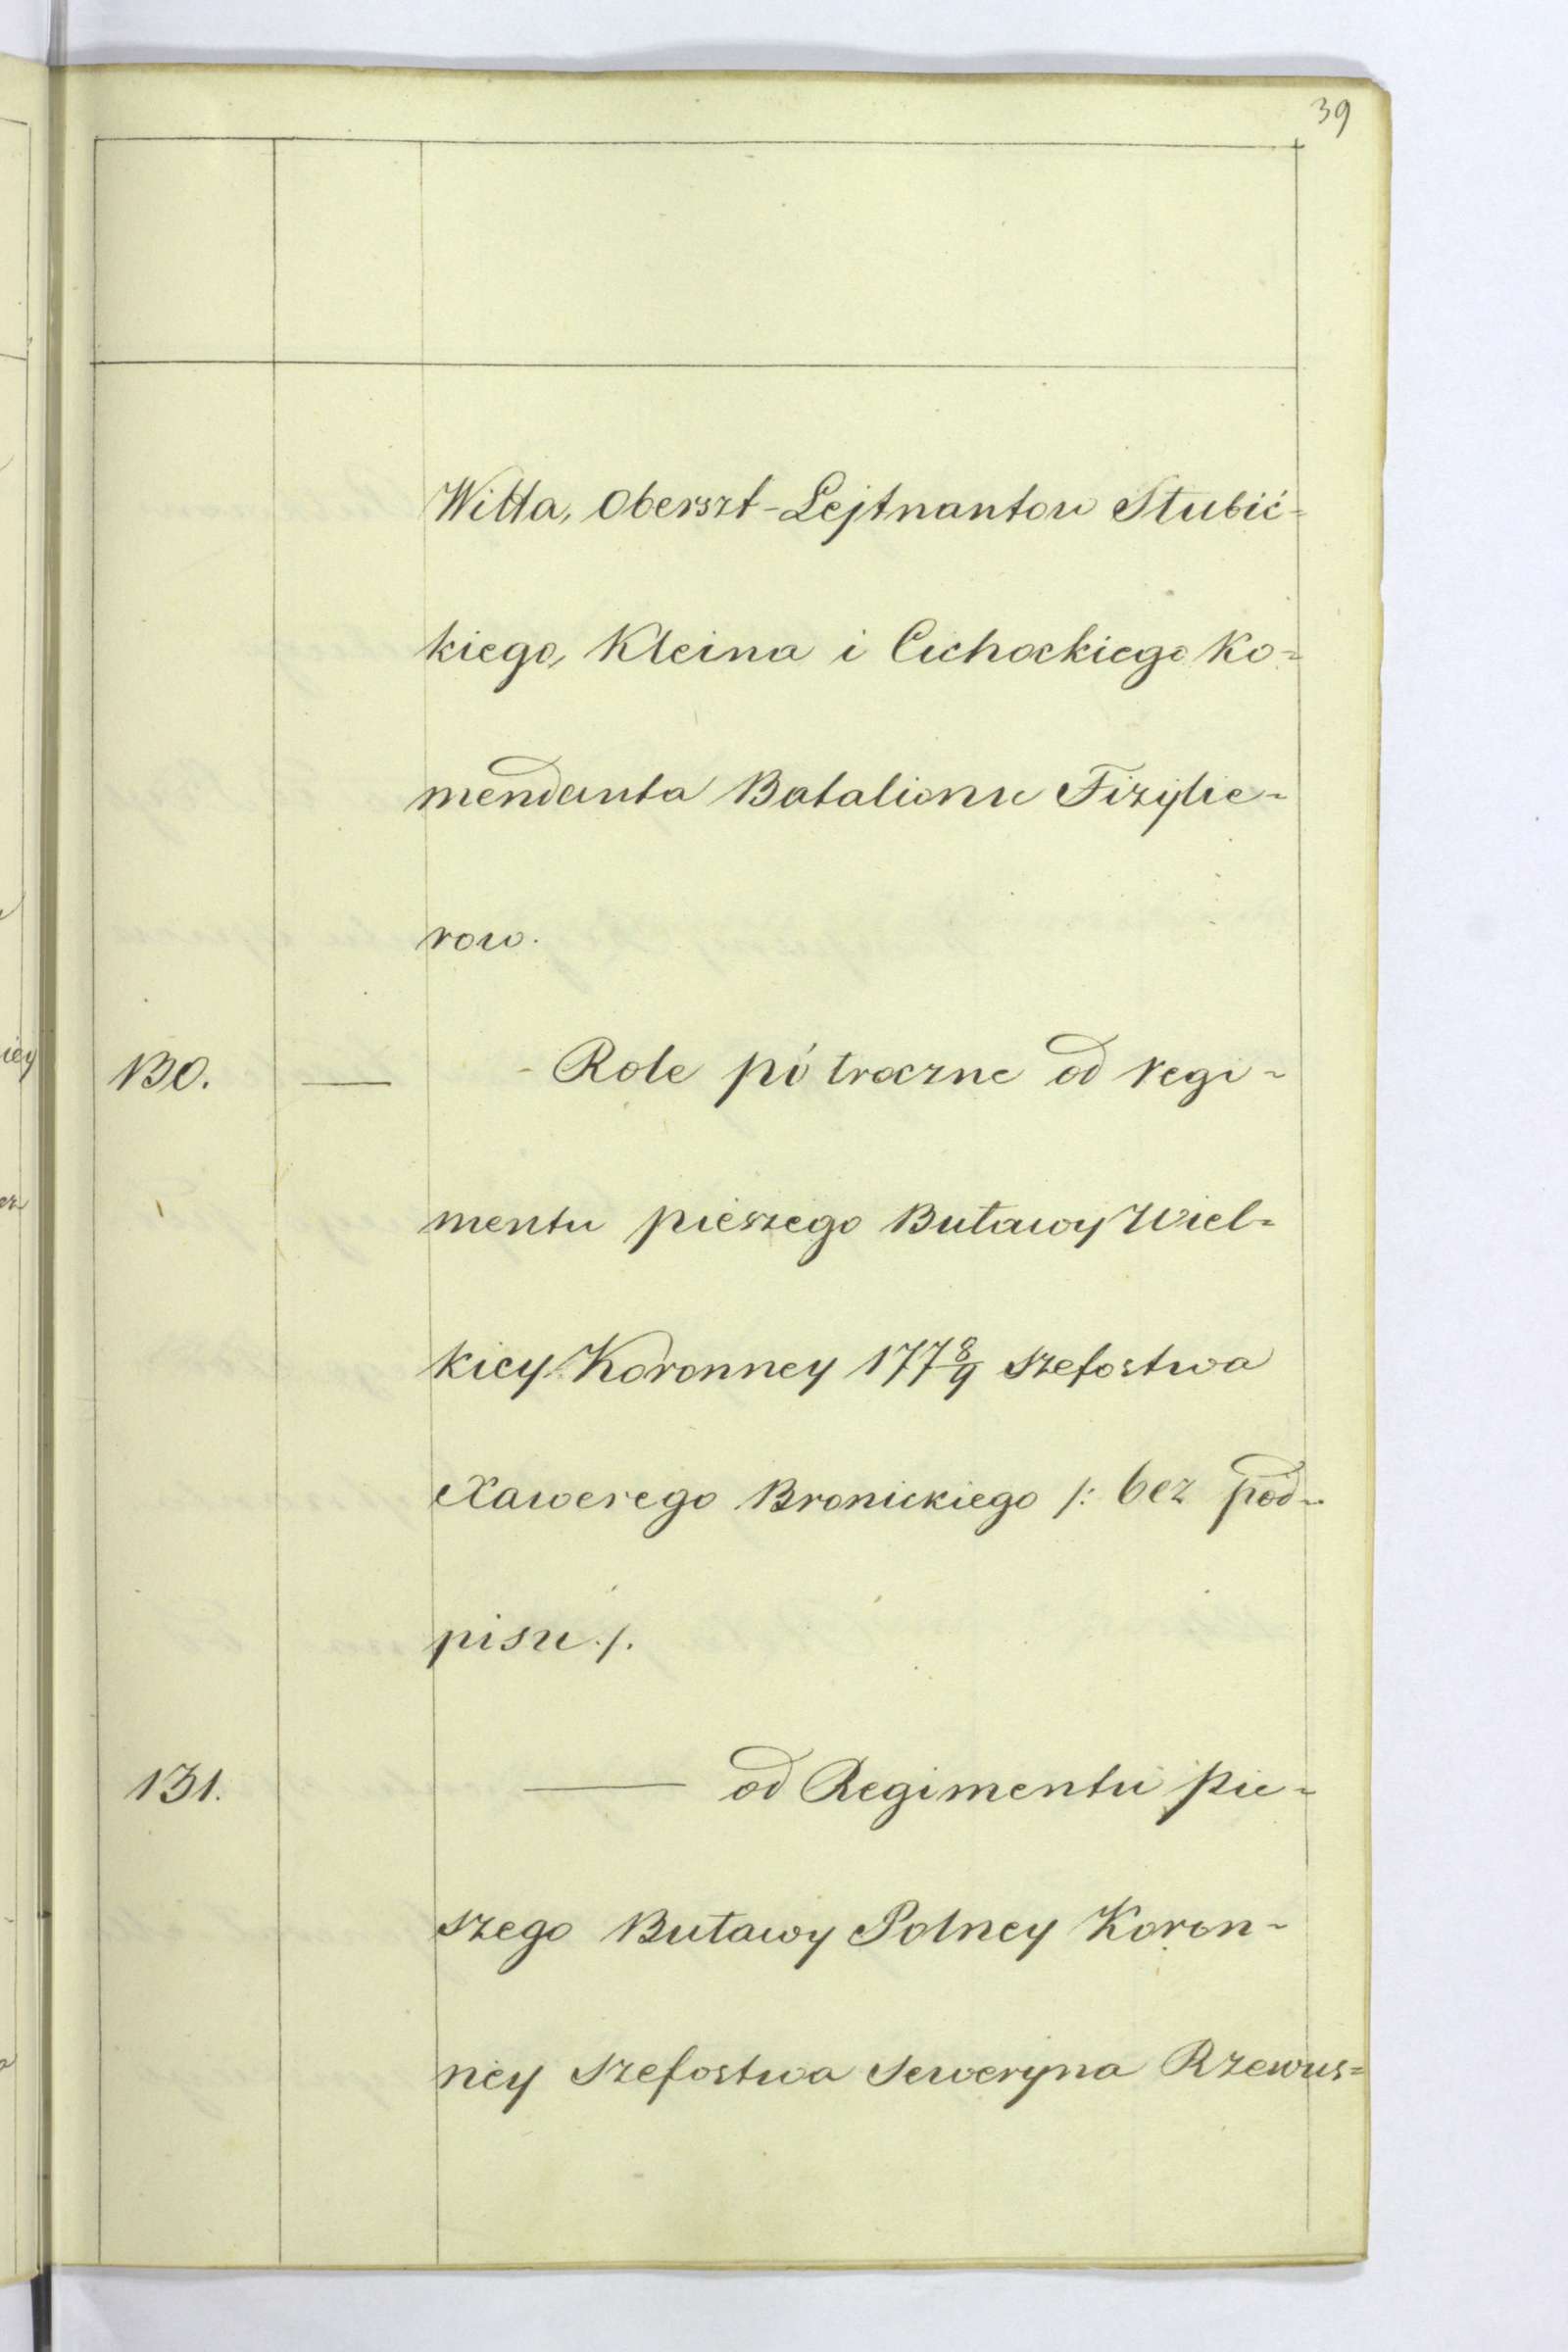 39
Witta, Oberszt-Lejtnantow Stubić=
kiego, Kleina i Cichockiego Ko=
mendanta Batalionu Fizylie-
row.
130. — - Role pół roczne od regi-
mentu pieszego Buławy Wiel=
kiey Koronney 177 8/9 szefostwa
Xawerego Bronickiego /: bez pod-
pisu :/.
131. — od Regimentu pie-
szego Buławy Polney Koron-
ney szefostwa Seweryna Rzewus=